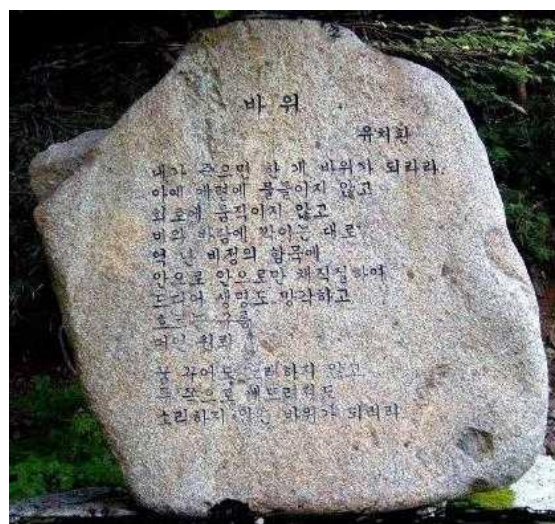 바위
유치환
내가 죽으면 한 개 바위가 되리라.
아예 애련에 물들이지 않고
희로에 움직이지 않고
비와 바람에 깎이는 대로
억 년 비정의 함묵에
안으로 안으로만 채찍질하여
드디어 생명도 망각하고
흐르는 구름
머언 원뢰
꿈 꾸어도 노래하지 않고
두 쪽으로 깨뜨려져도
소리하지 않는 바위가 되리라